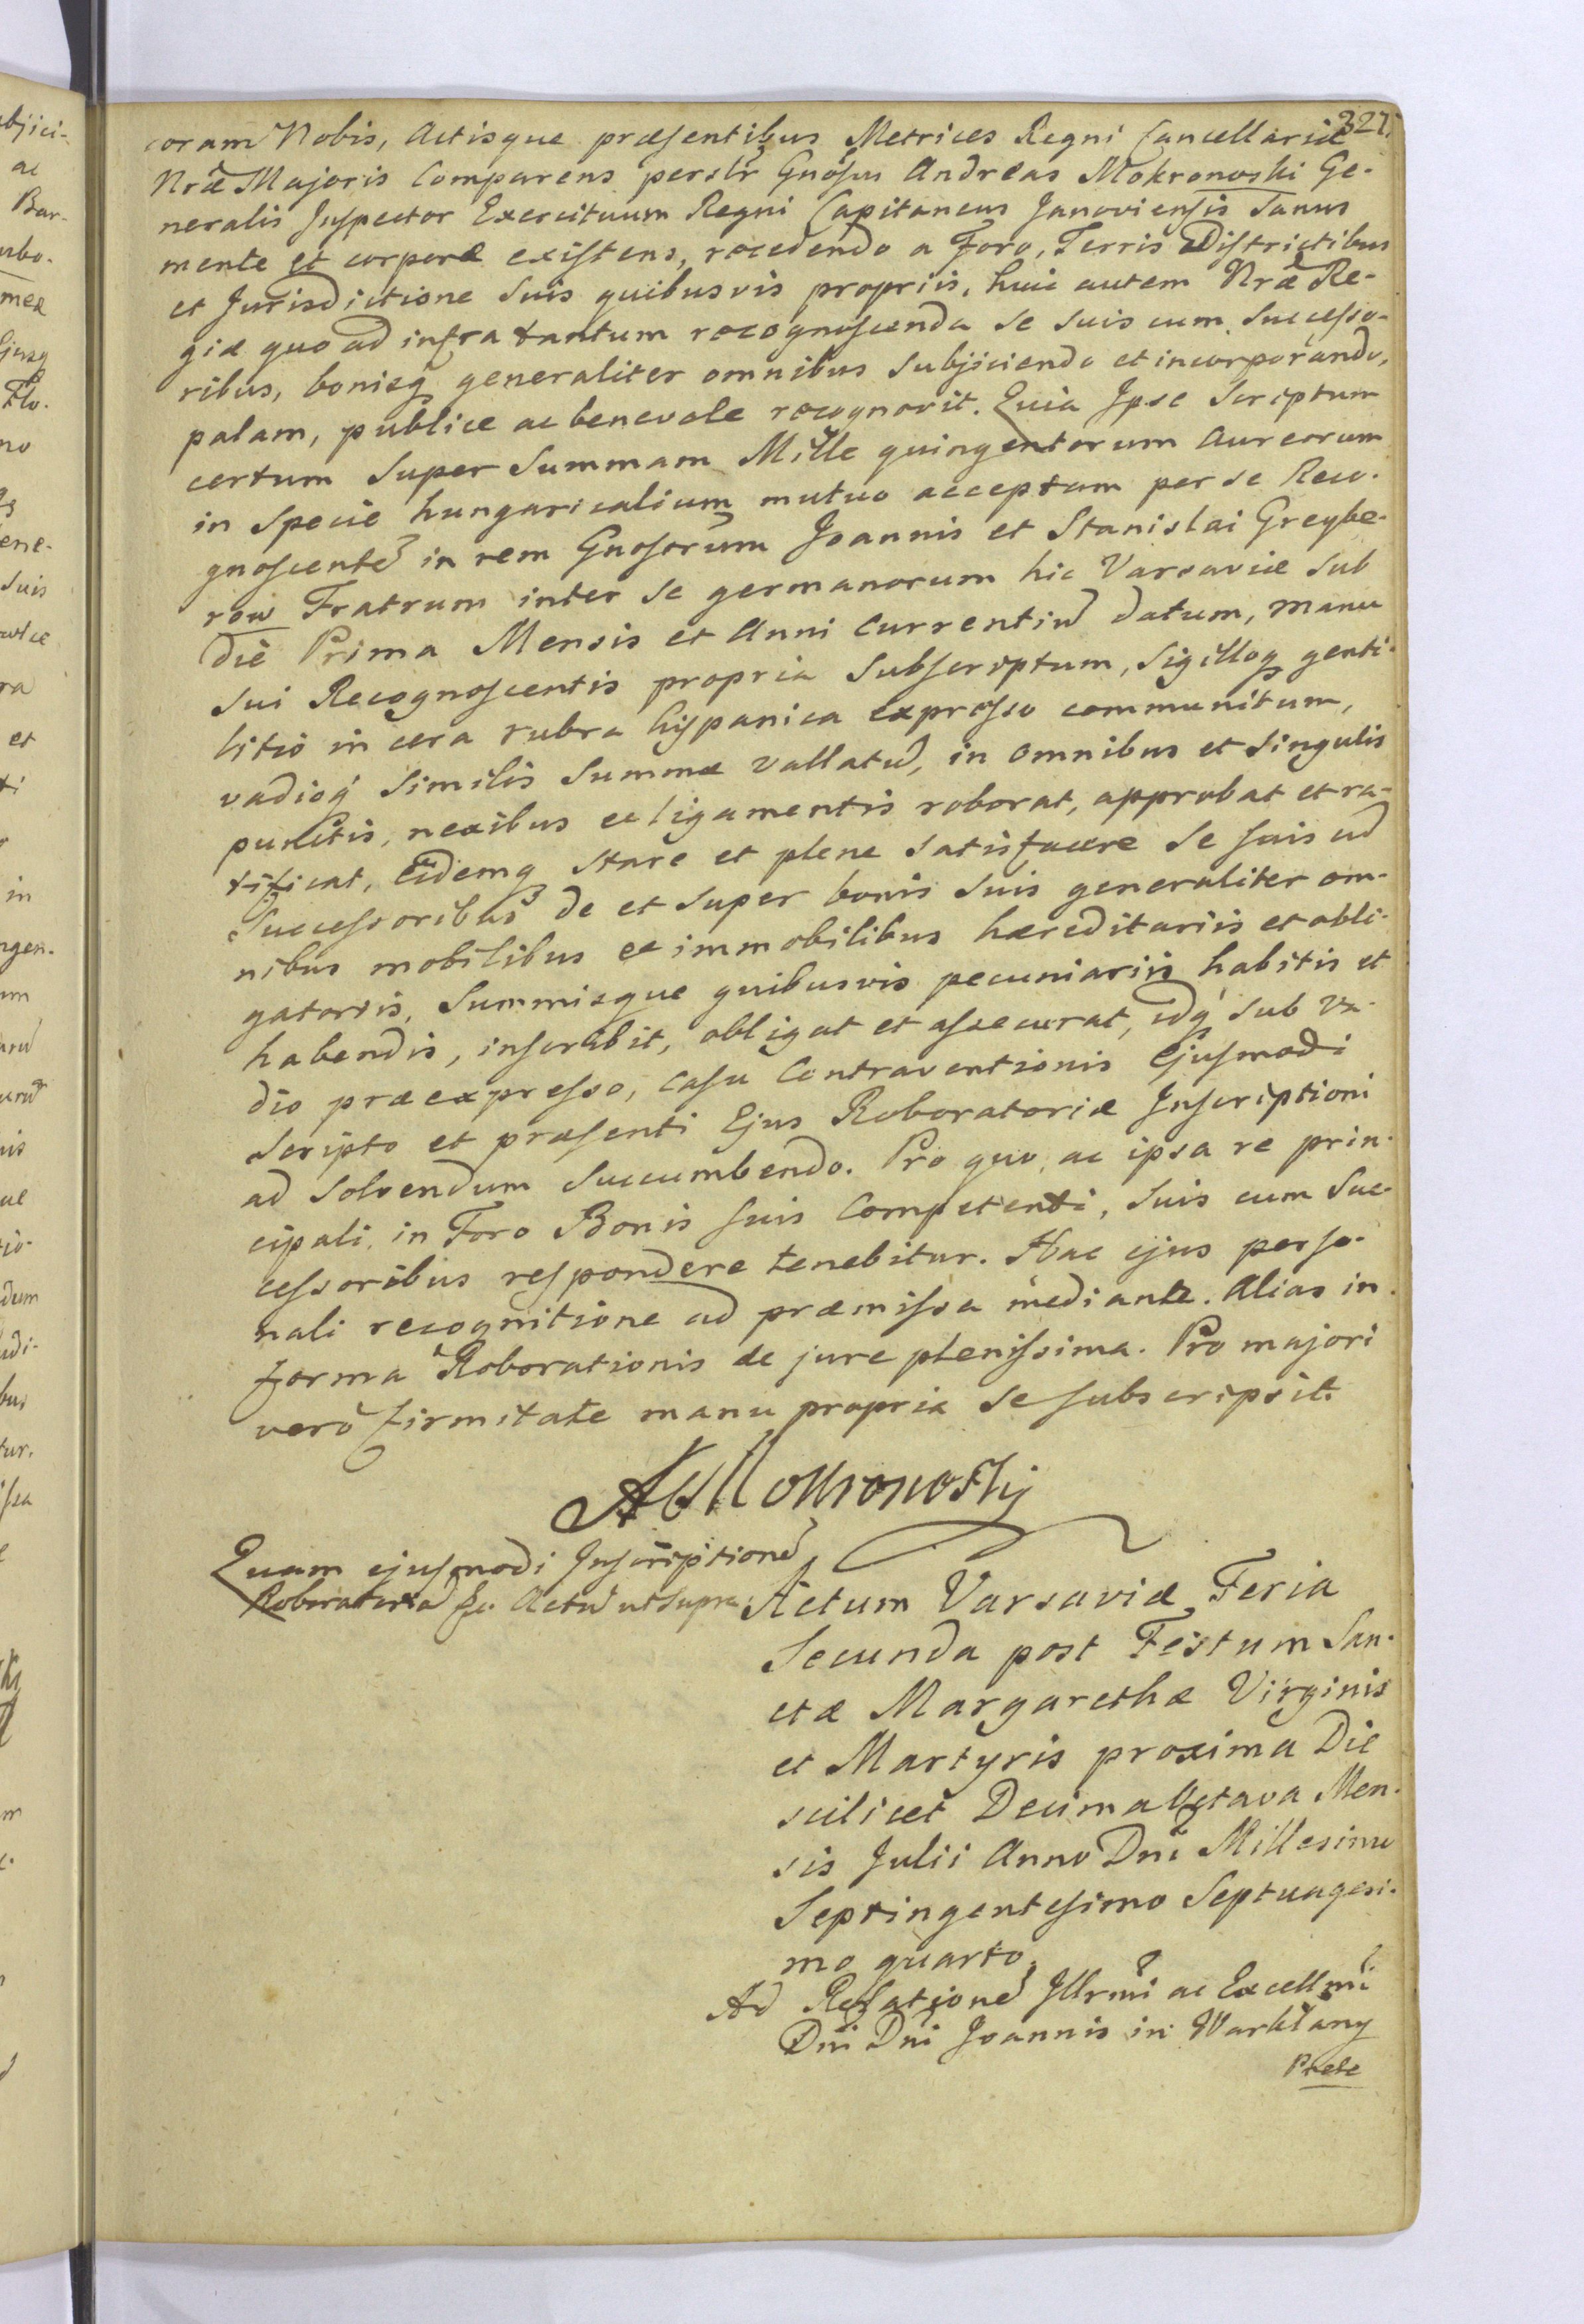 327.
coram Nobis, Actisque præsentibus Metrices Regni Cancellariæ
Nræ Majoris Comparens persłr Gnosus Andreas Mokronoski Ge-
neralis Inspector Exercituum Regni Capitaneus Janoviensis Sanus
mente et corpore existens, recedendo a Foro, Terris Districtibus
et Jurisdictione Suis quibusvis propriis, huic autem Nræ Re-
giæ quo ad infra tantum recognoscenda se suis cum Successo-
ribus, bonisq generaliter omnibus Subjiciendo et incorporando,
palam, publice ac benevole recognovit. Quia Ipse Scriptum
certum Super Summam Mille quingentorum Aureorum
in Specie hungaricalium mutuo acceptam per se Reco-
gnoscente in rem Gnosorum Joannis et Stanislai Greybe-
row Fratrum inter Se germanorum hic Varsaviæ Sub
die Prima Mensis et Anni Currentiu datum, manu
Sui Recognoscentis propria Subscriptum, Sigilloq genti-
litio in cera rubra hispanica expresso communitum,
vadioq Similis Summæ vallatu, in omnibus et Singulis
punctis, nexibus et ligamentis roborat, approbat et ra-
tificat, Eidemq Stare et plene Satisfacere Se Suis ad
Successoribus de et Super bonis Suis generaliter om-
nibus mobilibus et immobilibus hæreditariis et obli-
gatoriis, Summisque quibusvis pecuniariis habitis et
habendis, inscribit, obligat et assecurat, idq Sub va-
dio præexpresso, casu Contraventionis Ejusmodi
Scripto et præsenti Ejus Roboratoriæ Inscriptioni
ad Solvendum Succumbendo. Pro quo, ac ipsa re prin-
cipali, in Foro Bonis Suis Competenti, Suis cum Suc-
cessoribus respondere tenebitur. Hac ejus perso-
nali recognitione ad præmissa mediante. Alias in
forma Roborationis de jure plenissima. Pro majori
vero firmitate manu propria Se Subscripsit.
AMokronoskij
Quam ejusmodi Inscriptione
Roboratoria Actu ut Supra.
Actum Varsaviæ Feria
Secunda post Festum San-
ctæ Margarethæ Virginis
et Martyris proxima Die
scilicet Decima Octava Men-
sis Julii Anno Dni Millesimo
Septingentesimo Septuagesi-
mo quarto.
Ad Relatione Illrmi ac Excellmi
Dni Dni Joannis in Warklany